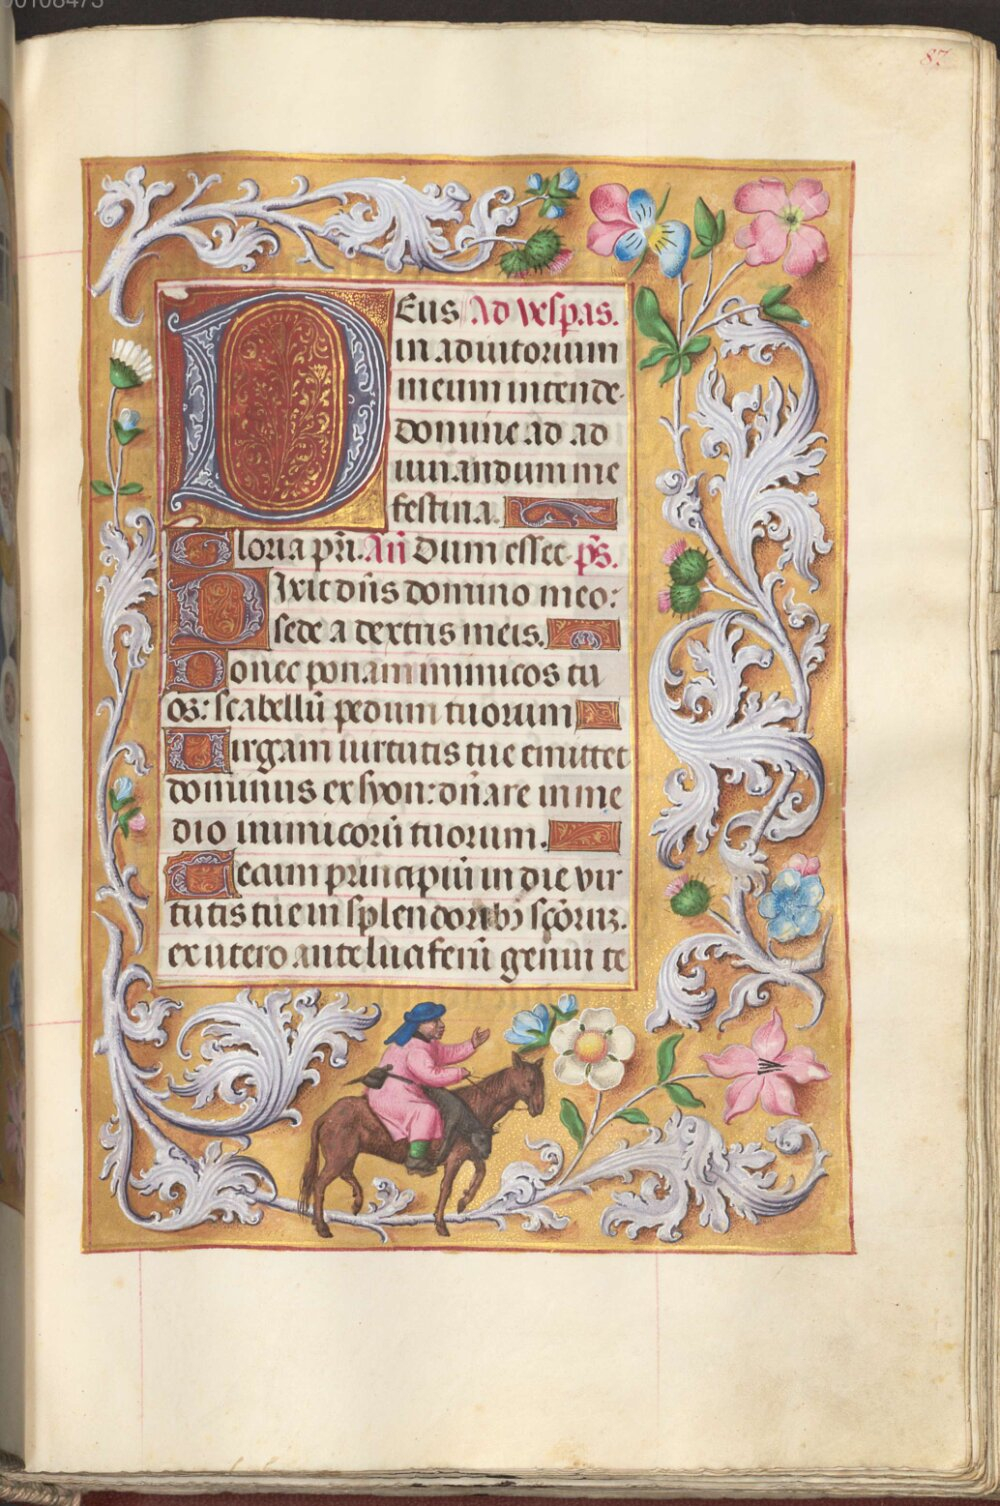 00108473
87
DEUS Ad vesp̄as.
in adiutorium
meum intende.
domine ad ad
iuuandum me
festina.
Gloria pr̄i. An̄ Dum esset. ps̄.
Dixit dn̄s domino meo:
sede a dextris meis.
Donec ponam inimicos tu
os: scabellū pedum tuorum
Virgam uirtutis tue emittet
dominus ex syon: dn̄are in me
dio inimicorū tuorum.
Tecum principiū in die vir
tutis tue in splendoribꝫ sc̄oruꝫ.
ex utero ante luciferū genui te